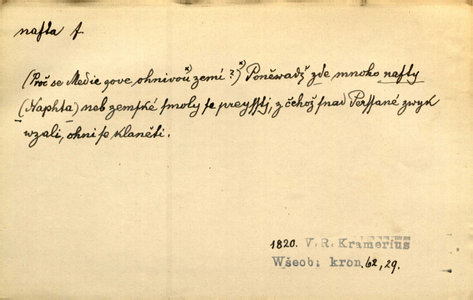 nafta f.
(Proč se Medie zove ohnivou zemí?) Poněwadž zde mnoho nafty
(Naphta) neb zemské smoly se preysstj, z čehož snad Perssané zwyk
wzali, ohni se klaněti.
1820. V. R. Kramerius
Wšeob: kron. 62, 29.